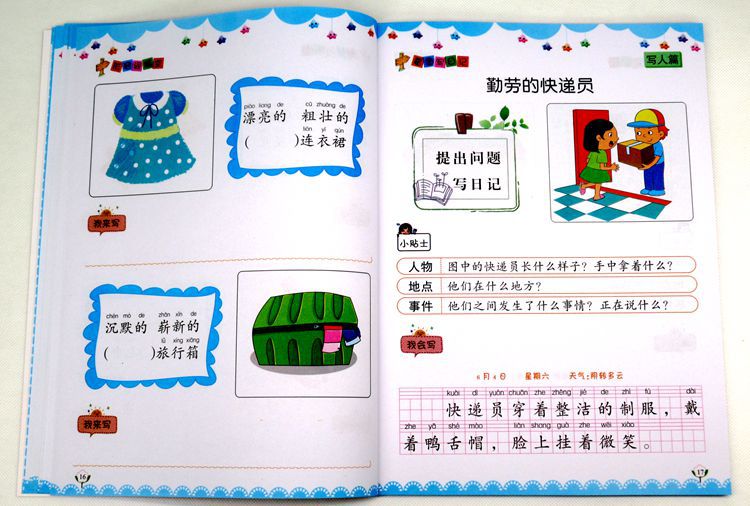 piào liang de cū zhuàng de
漂亮的 粗壮的
lián yī qún
( )连衣裙
我来写
chén mò de zhǎn xīn de
沉默的 崭新的
lǚ xíng xiāng
( )旅行箱
我来写
16
写人篇
勤劳的快递员
提出问题
写日记
小贴士
人物 图中的快递员长什么样子?手中拿着什么?
地点 他们在什么地方?
事件 他们之间发生了什么事情?正在说什么?
我会写
6月4日 星期六 天气:阴转多云
kuài dì yuán chuān zhe zhěng jié de zhì fú dài
快递员穿着整洁的制服,戴
zhe yā shé mào liǎn shang guà zhe wēi xiào
着鸭舌帽,脸上挂着微笑。
17